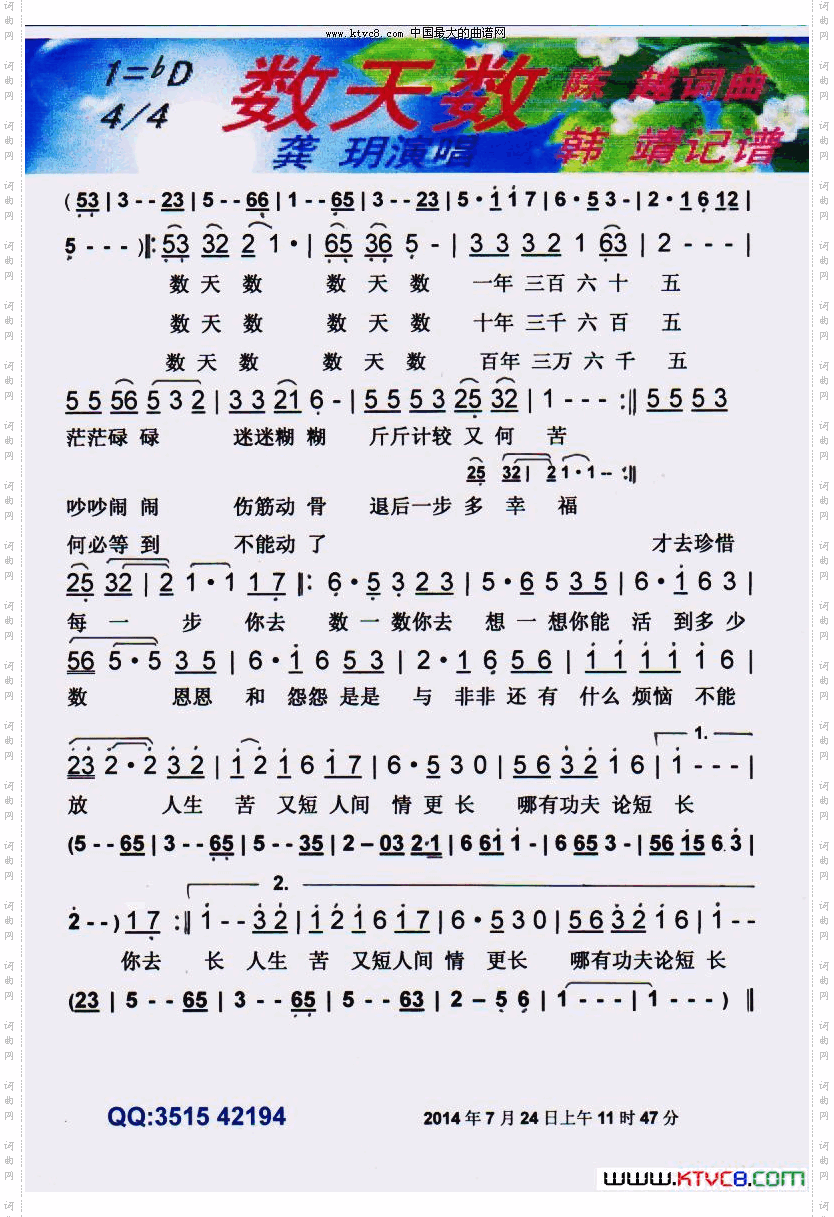 www.ktvc8.com 中国最大的曲谱网
1=♭D 数天数 陈 越词曲
4/4 龚 玥演唱 韩 靖记谱
(53|3--23|5--66|1--65|3--23|5·117|6·53-|2·1612|
5---)‖:53 32 2 1·|65 36 5-|3 3 3 2 1 63|2---|
数 天 数 数 天 数 一年 三百 六 十 五
数 天 数 数 天 数 十年 三千 六 百 五
数 天 数 数 天 数 百年 三万 六 千 五
5 5 56 5 3 2|3 3 21 6-|5 5 5 3 25 32|1---:‖5 5 5 3
茫茫碌 碌 迷迷糊 糊 斤斤计较 又 何 苦
25 32|2 1·1--:‖
吵吵闹 闹 伤筋动 骨 退后一步 多 幸 福
何必等 到 不能动 了 才去珍惜
25 32|2 1·1 1 7‖:6·5 3 2 3|5·6 5 3 5|6·1 6 3|
每 一 步 你去 数 一 数你去 想 一 想你能 活 到多 少
56 5·5 3 5|6·1 6 5 3|2·1 6 5 6|1 1 1 1 1 6|
数 恩恩 和 怨怨 是是 与 非非 还 有 什么 烦恼 不能
1.
23 2·2 3 2|1 2 1 6 1 7|6·5 3 0|5 6 3 2 1 6|1---|
放 人生 苦 又短 人间 情 更 长 哪有功夫 论短 长
(5--65|3--65|5--35|2-03 2·1|6 61 1-|6 65 3-|56 15 6.3|
2.
2--)1 7:‖1--3 2|1 2 1 6 1 7|6·5 3 0|5 6 3 2 1 6|1--
你去 长 人生 苦 又短人间 情 更长 哪有功夫论短 长
(23|5--65|3--65|5--63|2-5 6|1---|1---)‖
QQ:3515 42194 2014年7月24日上午11时47分
www.KTVC8.com